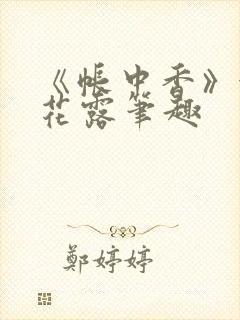 《帳中香》
花露筆趣
鄭婷婷